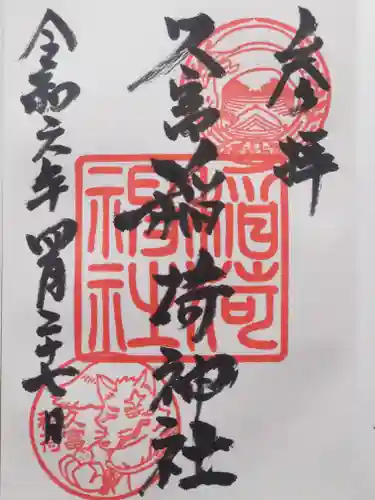 参拝
久富稲荷神社
令和六年四月二十七日
稲荷
神社